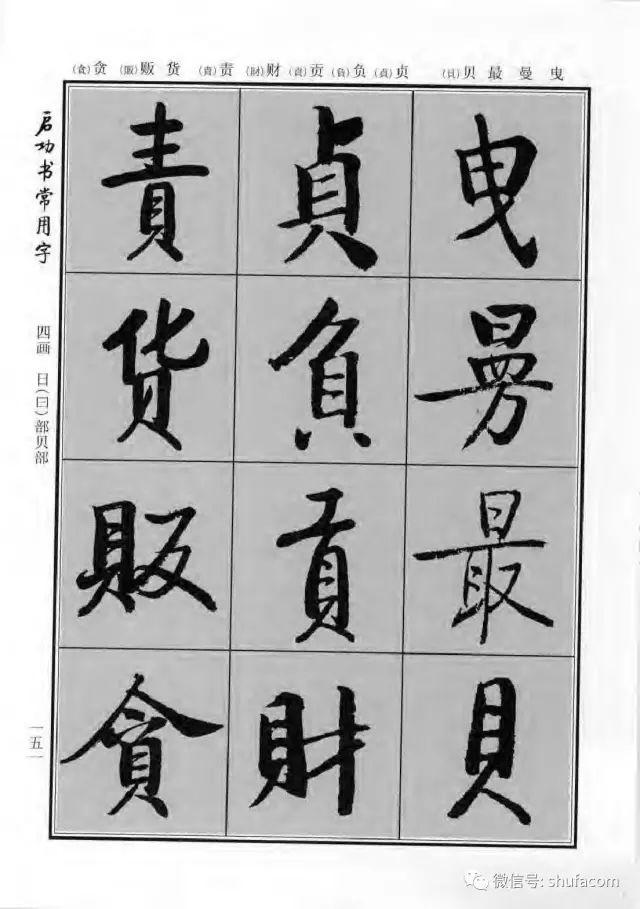 曳 曼 最 贝(貝) 贞(貞) 负(負) 贡(貢) 财(財) 责(責) 货 贩(販) 贪(貪)
曳曼最貝
貞負貢財
責貨販貪
启功书常用字
四画 日(曰)部贝部
五
微信号: shufacom